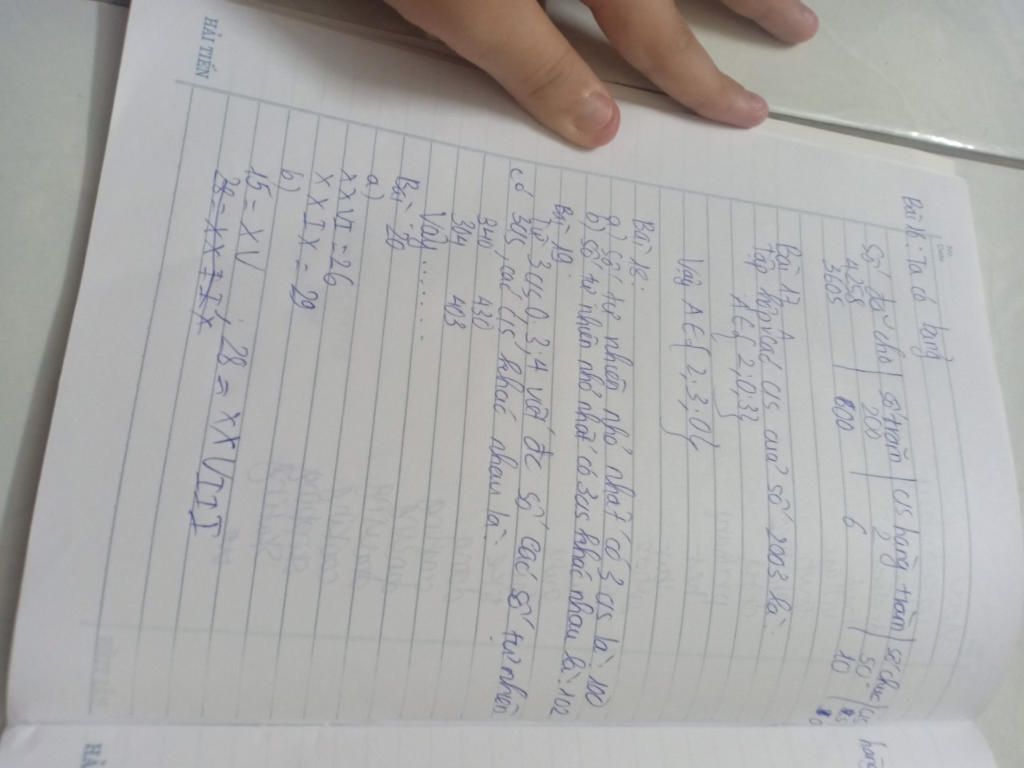 Bài 16: Ta có bảng
Số đã cho | số trăm | cs hàng trăm | số chục | cs hàng
4258 200 2 50
3605 600 6 10
Bài 17
Tập hợp A các cs của số 2003 là:
A ∈ { 2; 0; 3}
Vậy A ∈ { 2; 3; 0}
Bài 18:
a) số tự nhiên nhỏ nhất có 3 cs là: 100
b) số tự nhiên nhỏ nhất có 3cs khác nhau là: 102
Bài 19:
Từ 3 cs 0, 3, 4 viết đc số các số tự nhiên
có 3cs, các cs khác nhau là:
340 430
304 403
Vậy.......
Bài 20
a)
XXVI = 26
XXIX = 29
b)
15 = XV
28 = XXVIII
HẢI TIẾN